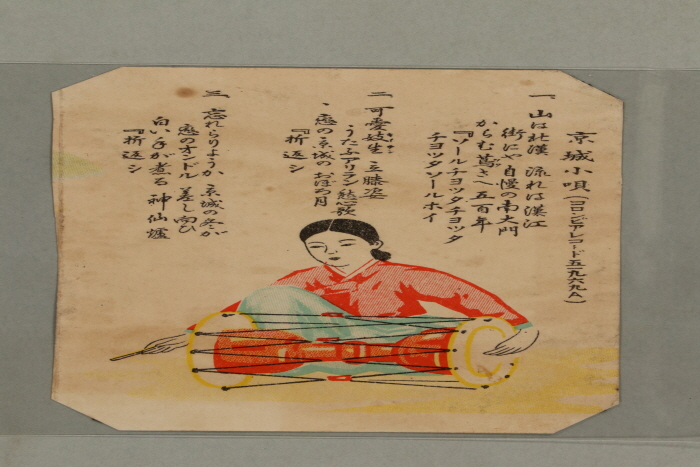 京城小唄(コロンビアレコード
一、山は北漢 流れは漢江
街にや自慢の南大門
からむ蔦さへ五百年
『ソールチヨツタチヨツタ
チヨツタソールホイ
二 可愛妓生 立膝姿
うたふアリラン愁心歌
戀の京城のおぼろ月
『折返シ
三 忘れらりようか 京城の冬が
戀のオンドル 差し向ひ
白い手が煮る 神仙爐
『折返シ